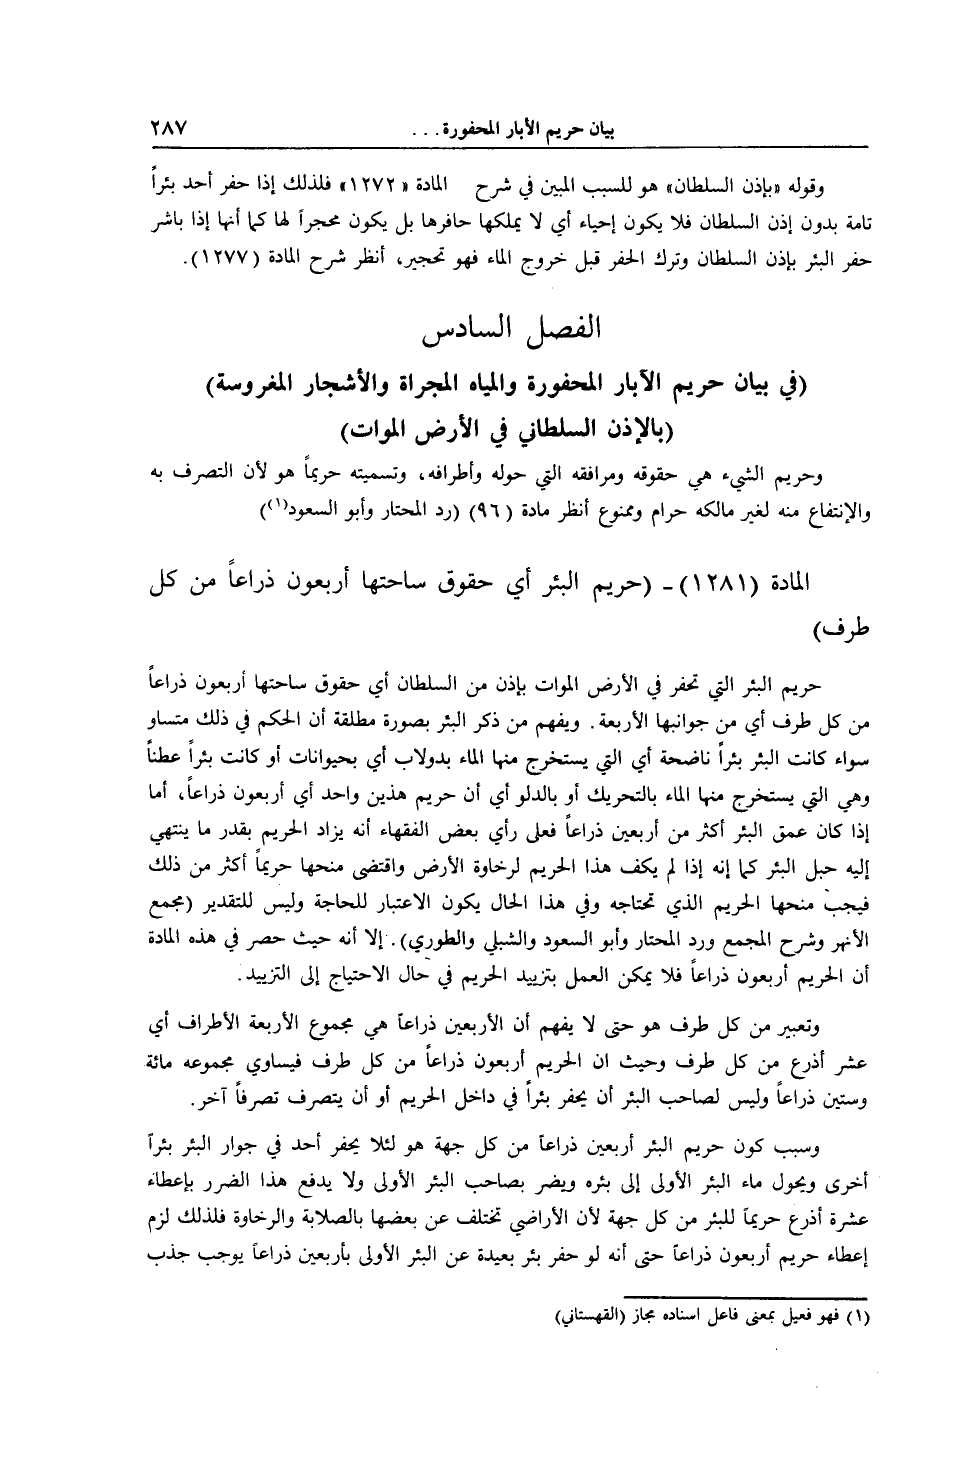 بيان حريم الأبار المحفورة... ٢٨٧
وقوله «بإذن السلطان» هو للسبب المبين في شرح المادة «١٢٧٢» فلذلك إذا حفر أحد بئراً
تامة بدون إذن السلطان فلا يكون إحياء أي لا يملكها حافرها بل يكون محجراً لها كما أنها إذا باشر
حفر البئر بإذن السلطان وترك الحفر قبل خروج الماء فهو تحجير، أنظر شرح المادة (١٢٧٧).
الفصل السادس
(في بيان حريم الآبار المحفورة والمياه المجراة والأشجار المغروسة)
(بالإذن السلطاني في الأرض الموات)
وحريم الشيء هي حقوقه ومرافقه التي حوله وأطرافه، وتسميته حريماً هو لأن التصرف به
والإنتفاع منه لغير مالكه حرام وممنوع أنظر مادة (٩٦) (رد المحتار وأبو السعود(١))
المادة (١٢٨١)ـ (حريم البئر أي حقوق ساحتها أربعون ذراعاً من كل
طرف)
حريم البئر التي تحفر في الأرض الموات بإذن من السلطان أي حقوق ساحتها أربعون ذراعاً
من كل طرف أي من جوانبها الأربعة. ويفهم من ذكر البئر بصورة مطلقة أن الحكم في ذلك متساو
سواء كانت البئر بئراً ناضحة أي التي يستخرج منها الماء بدولاب أي بحيوانات أو كانت بئراً عطناً
وهي التي يستخرج منها الماء بالتحريك أو بالدلو أي أن حريم هذين واحد أي أربعون ذراعاً، أما
إذا كان عمق البئر أكثر من أربعين ذراعاً فعلى رأي بعض الفقهاء أنه يزاد الحريم بقدر ما ينتهي
إليه حبل البئر كما إنه إذا لم يكف هذا الحريم لرخاوة الأرض واقتضى منحها حريماً أكثر من ذلك
فيجب منحها الحريم الذي تحتاجه وفي هذا الحال يكون الاعتبار للحاجة وليس للتقدير (مجمع
الأنهر وشرح المجمع ورد المحتار وأبو السعود والشبلي والطوري). إلا أنه حيث حصر في هذه المادة
أن الحريم أربعون ذراعاً فلا يمكن العمل بتزييد الحريم في حال الاحتياج إلى التزييد.
وتعبير من كل طرف هو حتى لا يفهم أن الأربعين ذراعاً هي مجموع الأربعة الأطراف أي
عشر أذرع من كل طرف وحيث ان الحريم أربعون ذراعاً من كل طرف فيساوي مجموعه مائة
وستين ذراعاً وليس لصاحب البئر أن يحفر بئراً في داخل الحريم أو أن يتصرف تصرفاً آخر.
وسبب كون حريم البئر أربعين ذراعاً من كل جهة هو لئلا يحفر أحد في جوار البئر بئراً
أخرى ويحول ماء البئر الأولى إلى بئره ويضر بصاحب البئر الأولى ولا يدفع هذا الضرر بإعطاء
عشرة أذرع حريماً للبئر من كل جهة لأن الأراضي تختلف عن بعضها بالصلابة والرخاوة فلذلك لزم
إعطاء حريم أربعون ذراعاً حتى أنه لو حفر بئر بعيدة عن البئر الأولى بأربعين ذراعاً يوجب جذب
(١) فهو فعيل بمعنى فاعل اسناده مجاز (القهستاني)